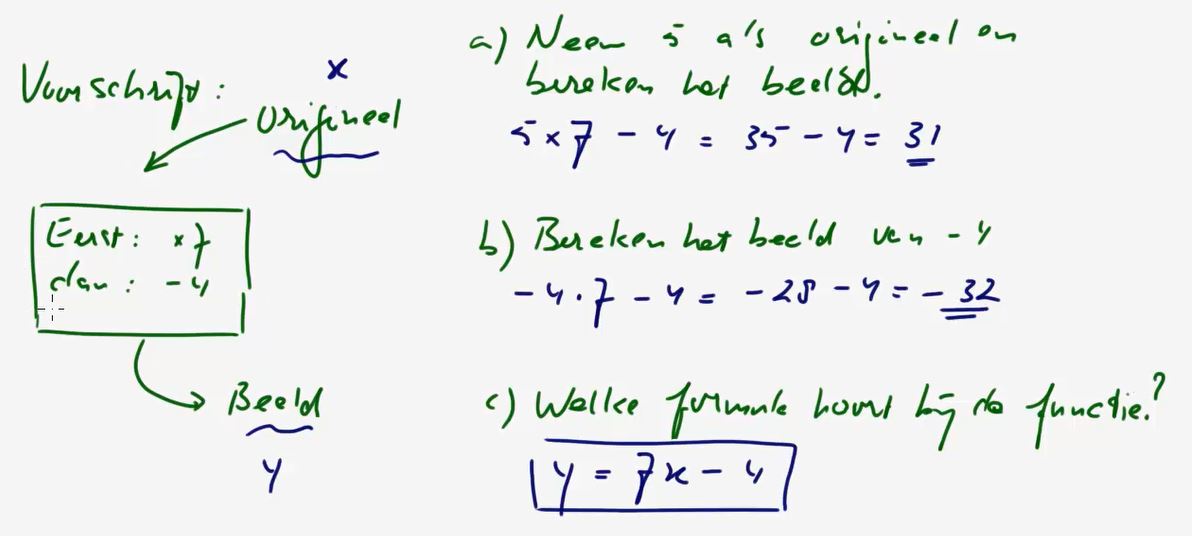 Voorschrift:
x
Origineel
Eerst: x7
dan: -4
Beeld
y
a) Neem 5 a's origineel en
bereken het beeld.
5 x 7 - 4 = 35 - 4 = 31
b) Bereken het beeld van -4
-4 · 7 - 4 = -28 - 4 = -32
c) Welke formule hoort bij de functie?
y = 7x - 4